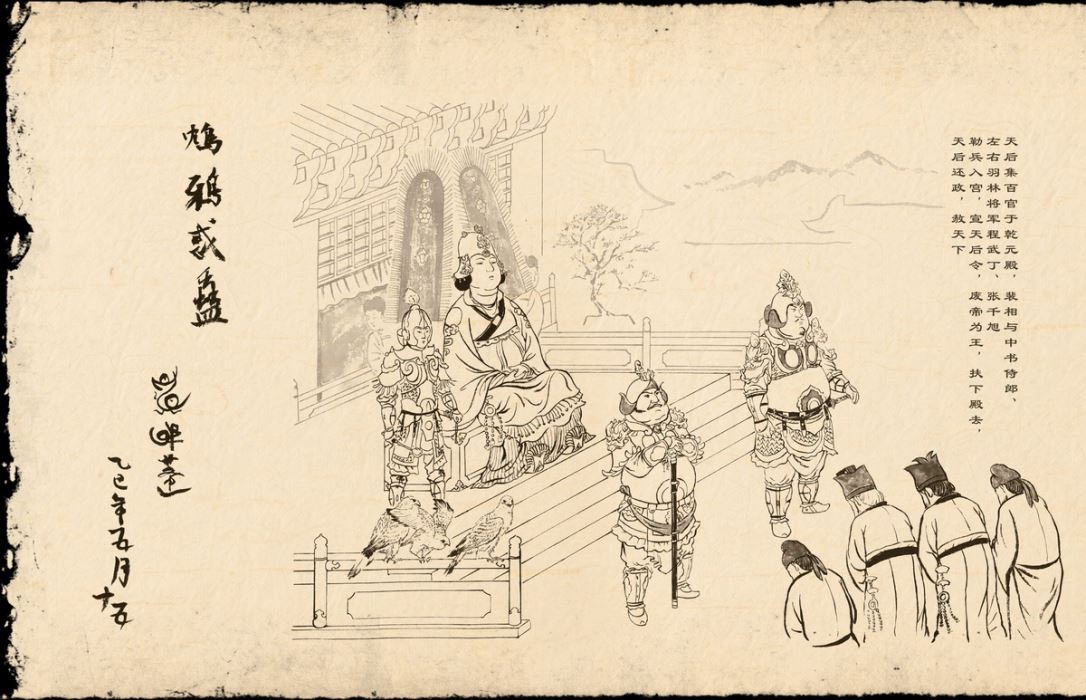 天后集百官于乾元殿，裴相与中书侍郎、
左右羽林将军程武丁、张千旭
勒兵入宫，宣天后令，废帝为王，扶下殿去，
天后还政，赦天下
鸩鸦惑蛊
乙巳年五月
十五